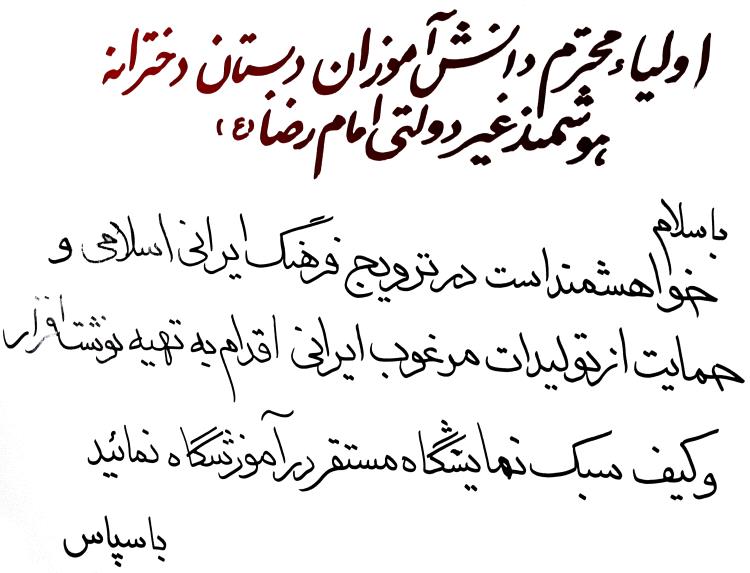 اولیاء محترم دانش‌آموزان دبستان دخترانه
هوشمند غیر دولتی امام رضا (ع)
با سلام
خواهشمند است در ترویج فرهنگ ایرانی اسلامی و
حمایت از تولیدات مرغوب ایرانی اقدام به تهیه نوشت افزار
و کیف سبک نمایشگاه مستقر در آموزشگاه نمائید
با سپاس